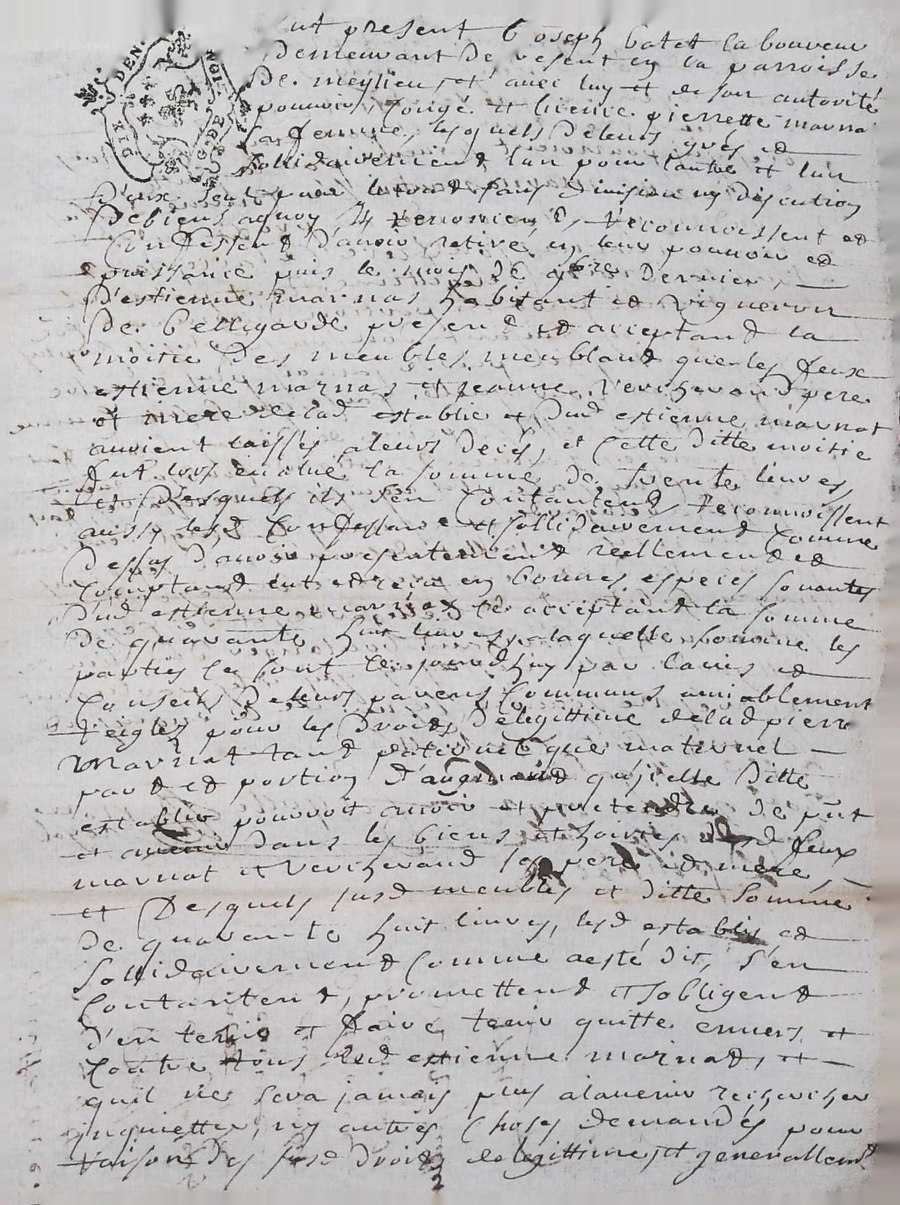 DIX DEN. NOI. G. DE
ut present Joseph batet laboureur
demeurant de present en la parroisse
de meylieu, et avec luy et de son autorité
pouvoir, congé et licence pierrette marnat
sa femme, lesquels de leurs grés et
sollidairement l'un pour l'autre et l'un
d'eux seul pour le tout sans division ny discution
de biens a quoy ils renoncient, reconnoissent et
confessent d'avoir retiré en leur pouvoir et
puissance puis le mois de 9bre dernier,
d'estienne marnas habitant et vigneron
de bellegarde present et acceptant la
moitié des meubles meublant que les feux
estienne marnas et jeanne Vercherand pere
et mere de lad establie et dud estienne marnat
avoient laissés a leurs deces, et cette ditte moitié
fut lors evalué la somme de trente livres,
et desquels ils s'en contantent, reconnoissent
aussy lesd confessants et sollidairement comme
dessus d'avoir presentement reellement et
comptant eut et receu en bonnes especes sonantes
dud estienne marnas ce acceptant la somme
de quarante huit livres, a laquelle somme les
parties se sont ce jourdhuy par l'avis et
conseils de leurs parens communs amiablement
reiglés pour les droits de legittime de lad pierre
marnat tant paternel que maternel
part et portion d'augment qu'icelle ditte
establie pouvoit avoir et pretendre de put
et avenir dans les biens et hoiries desd feux
marnat et Vercherand ses pere et mere,
et desquels susd meubles et ditte somme
de quarante huit livres, lesd establis et
sollidairement comme a esté dit, s'en
contantent, promettent et s'obligent
d'en tenir et faire tenir quitte envers et
contre tous led estienne marnat, et
qu'il ne sera jamais plus a l'avenir rechercher
inquietter, ny autres choses demandés pour
raison des susd droits de legittime, et generallemt